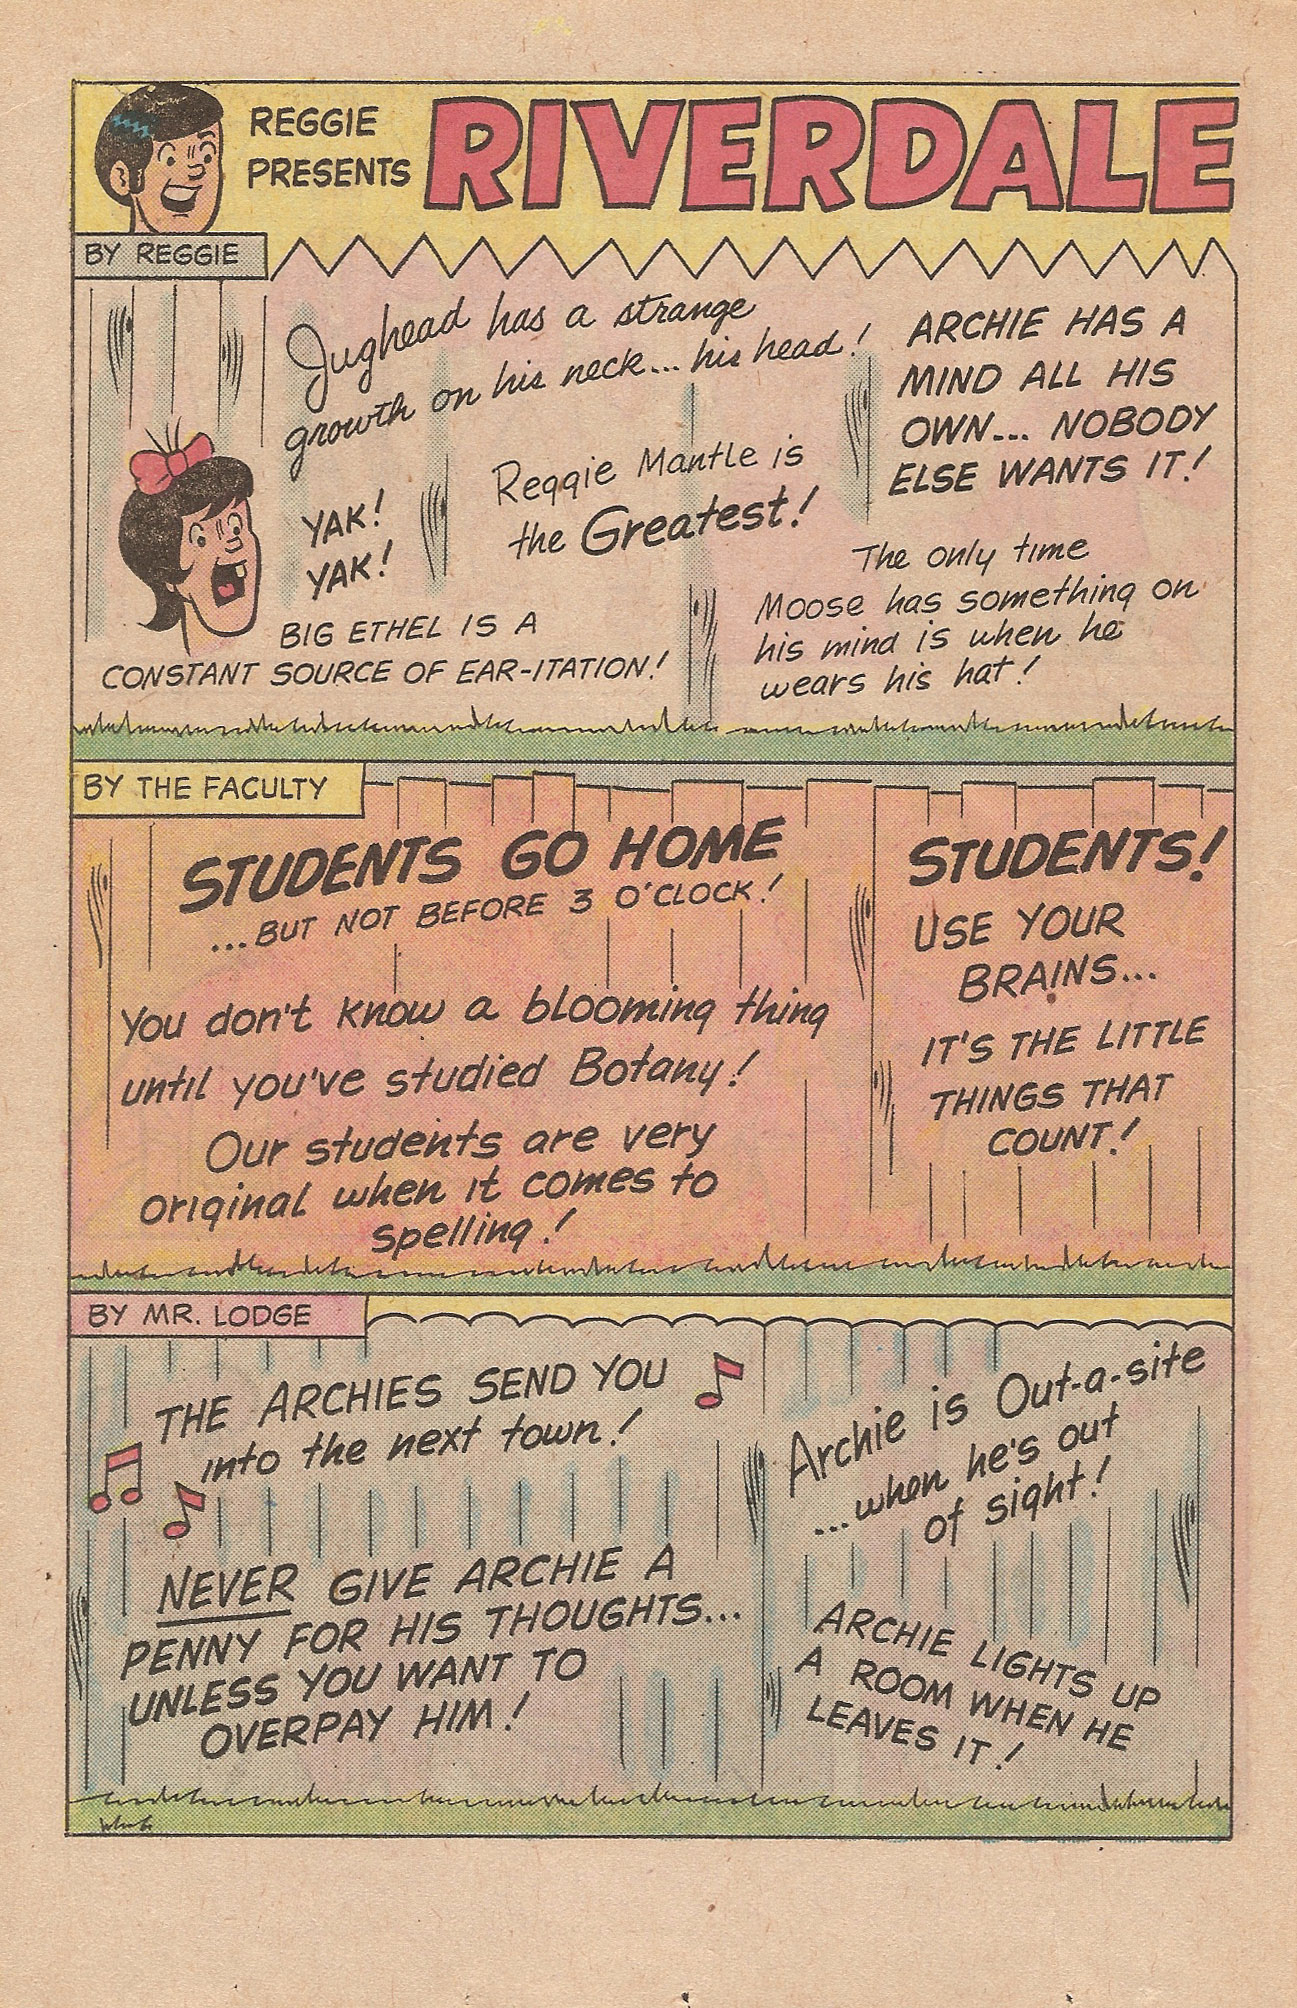 REGGIE
PRESENTS
RIVERDALE
BY REGGIE
Jughead has a strange
growth on his neck... his head!
ARCHIE HAS A
MIND ALL HIS
OWN... NOBODY
ELSE WANTS IT!
Reggie Mantle is
the Greatest!
YAK!
YAK!
BIG ETHEL IS A
CONSTANT SOURCE OF EAR-ITATION!
The only time
Moose has something on
his mind is when he
wears his hat!
BY THE FACULTY
STUDENTS GO HOME
...BUT NOT BEFORE 3 O'CLOCK!
You don't know a blooming thing
until you've studied Botany!
Our students are very
original when it comes to
spelling!
STUDENTS!
USE YOUR
BRAINS...
IT'S THE LITTLE
THINGS THAT
COUNT!
BY MR. LODGE
THE ARCHIES SEND YOU
into the next town!
NEVER GIVE ARCHIE A
PENNY FOR HIS THOUGHTS...
UNLESS YOU WANT TO
OVERPAY HIM!
Archie is Out-a-site
...when he's out
of sight!
ARCHIE LIGHTS UP
A ROOM WHEN HE
LEAVES IT!